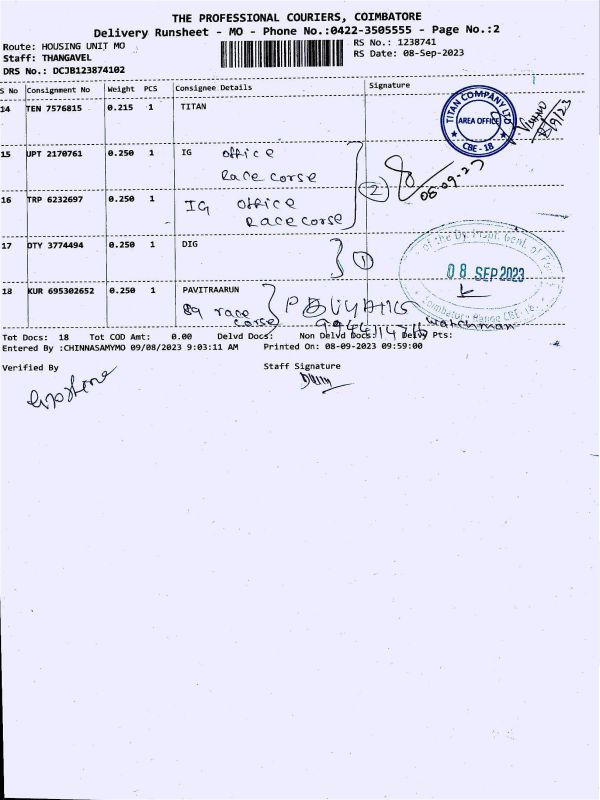 THE PROFESSIONAL COURIERS, COIMBATORE
Delivery Runsheet - MO - Phone No.:0422-3505555 - Page No.:2
Route: HOUSING UNIT MO
Staff: THANGAVEL
DRS No.: DCJB123874102
RS No.: 1238741
RS Date: 08-Sep-2023
S No Consignment No Weight PCS Consignee Details Signature
14 TEN 7576815 0.215 1 TITAN
TITAN COMPANY LTD
AREA OFFICE
CBE - 18
15 UPT 2170761 0.250 1 IG office
Race corse
16 TRP 6232697 0.250 1 IG office
Race corse
2
08-09-23
17 DTY 3774494 0.250 1 DIG
1
08 SEP 2023
18 KUR 695302652 0.250 1 PAVITRAARUN
89 race
corse
watchman
Tot Docs: 18 Tot COD Amt: 0.00 Delvd Docs: Non Delvd Docs: Delvy Pts:
Entered By :CHINNASAMYMO 09/08/2023 9:03:11 AM Printed On: 08-09-2023 09:59:00
Verified By Staff Signature